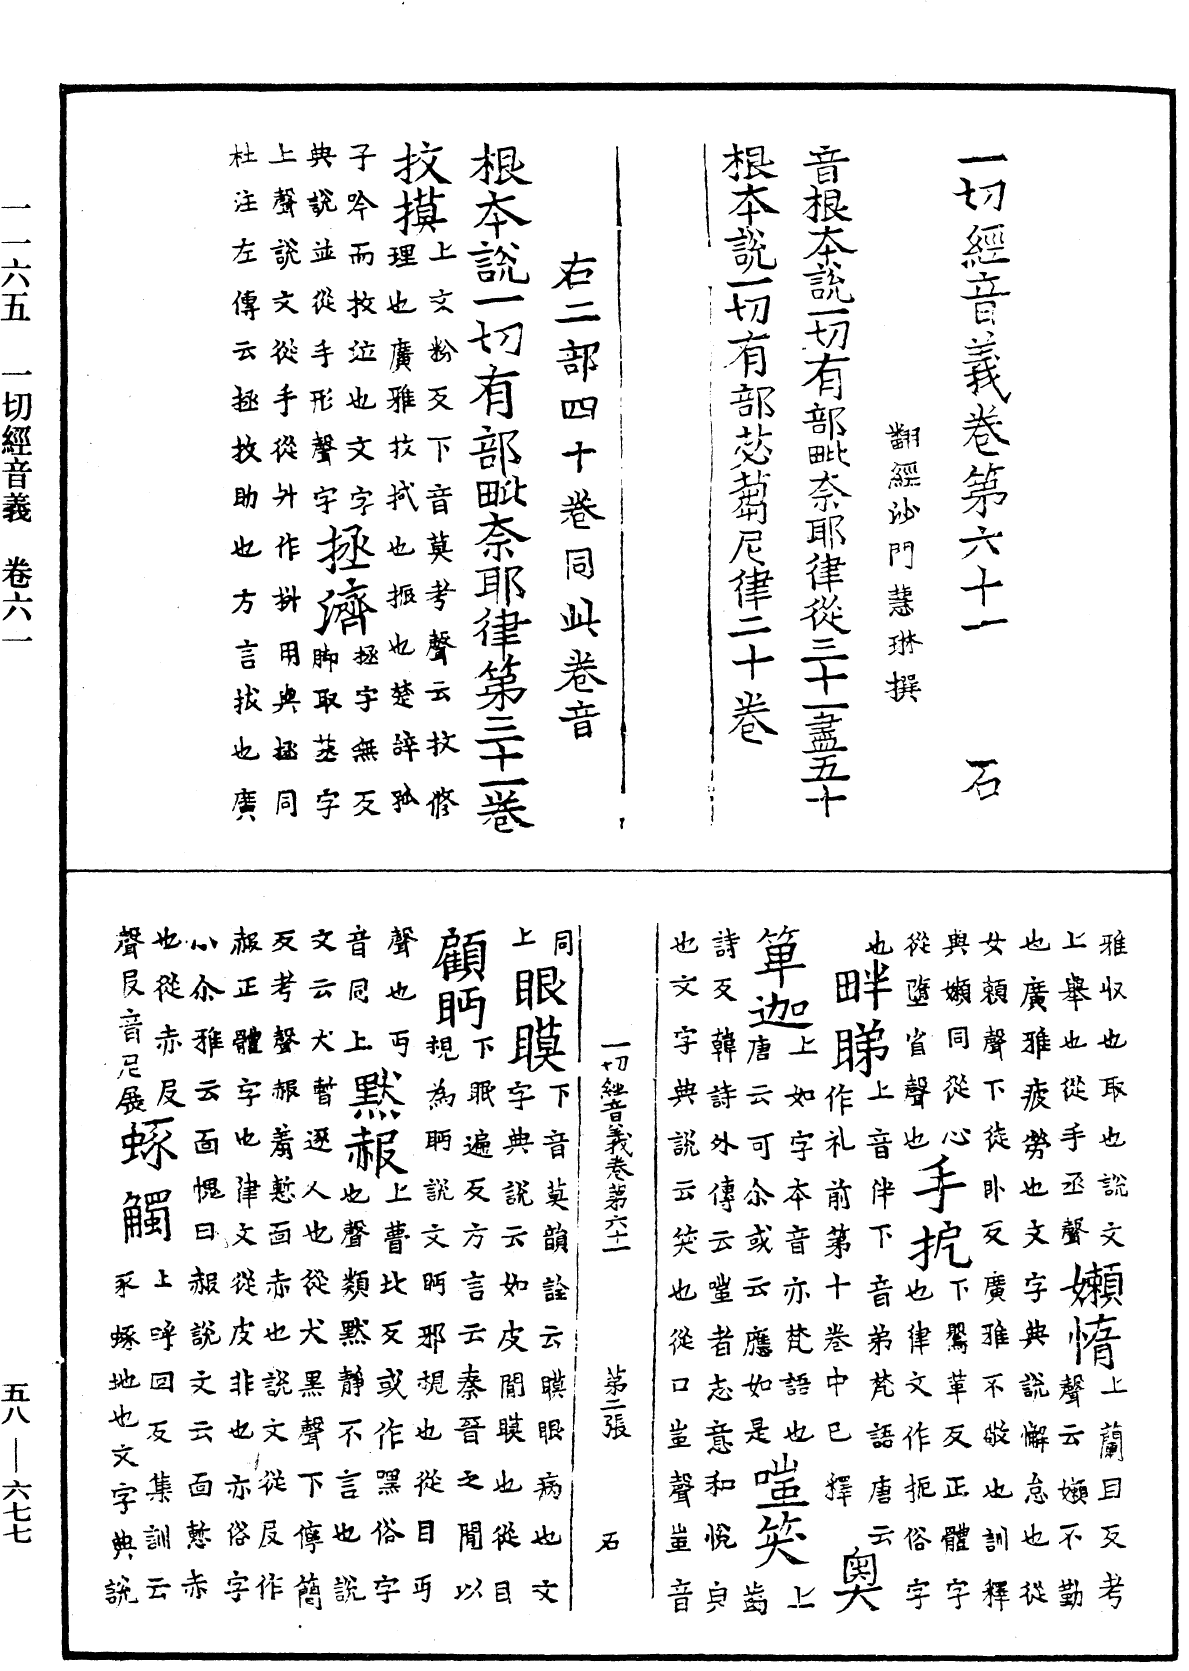 一切經音義卷第六十一 石
翻經沙門慧琳撰
音根本說一切有部毗奈耶律從三十一盡五十
根本說一切有部苾蒭尼律二十卷
右二部四十卷同此卷音
根本說一切有部毗奈耶律第三十一卷
抆摸上文粉反下音莫考聲云抆修
理也廣雅抆拭也振也楚辞孤
子吟而抆泣也文字
典說並從手形聲字
拯濟拯字無反
脚取蒸字
上聲說文從手從廾作抍用與拯同
杜注左傳云拯救助也方言拔也廣
雅収也取也說文
上舉也從手丞聲
嬾惰上蘭目反考
聲云嬾不勤
也廣雅疲勞也文字典說懈怠也從
女頼聲下徒卧反廣雅不敬也訓釋
與嬾同從心
從墮省聲也
手搤下鸎革反正體字
也律文作扼俗字
也
畔睇上音伴下音弟梵語唐云
作礼前第十卷中已釋
奥
箄迦上如字本音亦梵語也
唐云可尒或云應如是
嗤笑上
齒
詩反韓詩外傳云嗤者志意和悅皃
也文字典說云笑也從口蚩聲蚩音
一切經音義卷第六十一 第二張 石
同
上
眼瞙下音莫韻詮云瞙眼病也文
字典說云如皮間瞙也從目
顧眄下眠遍反方言云秦晉之間以
視為眄說文眄邪視也從目丏
聲也丏
音同上
默赧上瞢比反或作嘿俗字
也聲類默靜不言也說
文云犬暫逐人也從犬黑聲下儜簡
反考聲赧羞慙面赤也說文從㞋作
赧正體字也律文從皮非也亦俗字
心尒雅云面愧曰赧說文云面慙赤
也從赤㞋
聲㞋音尼展
觸上呼回反集訓云
豕地也文字典說
一一六五 一切經音義 卷六一
五八—六七七